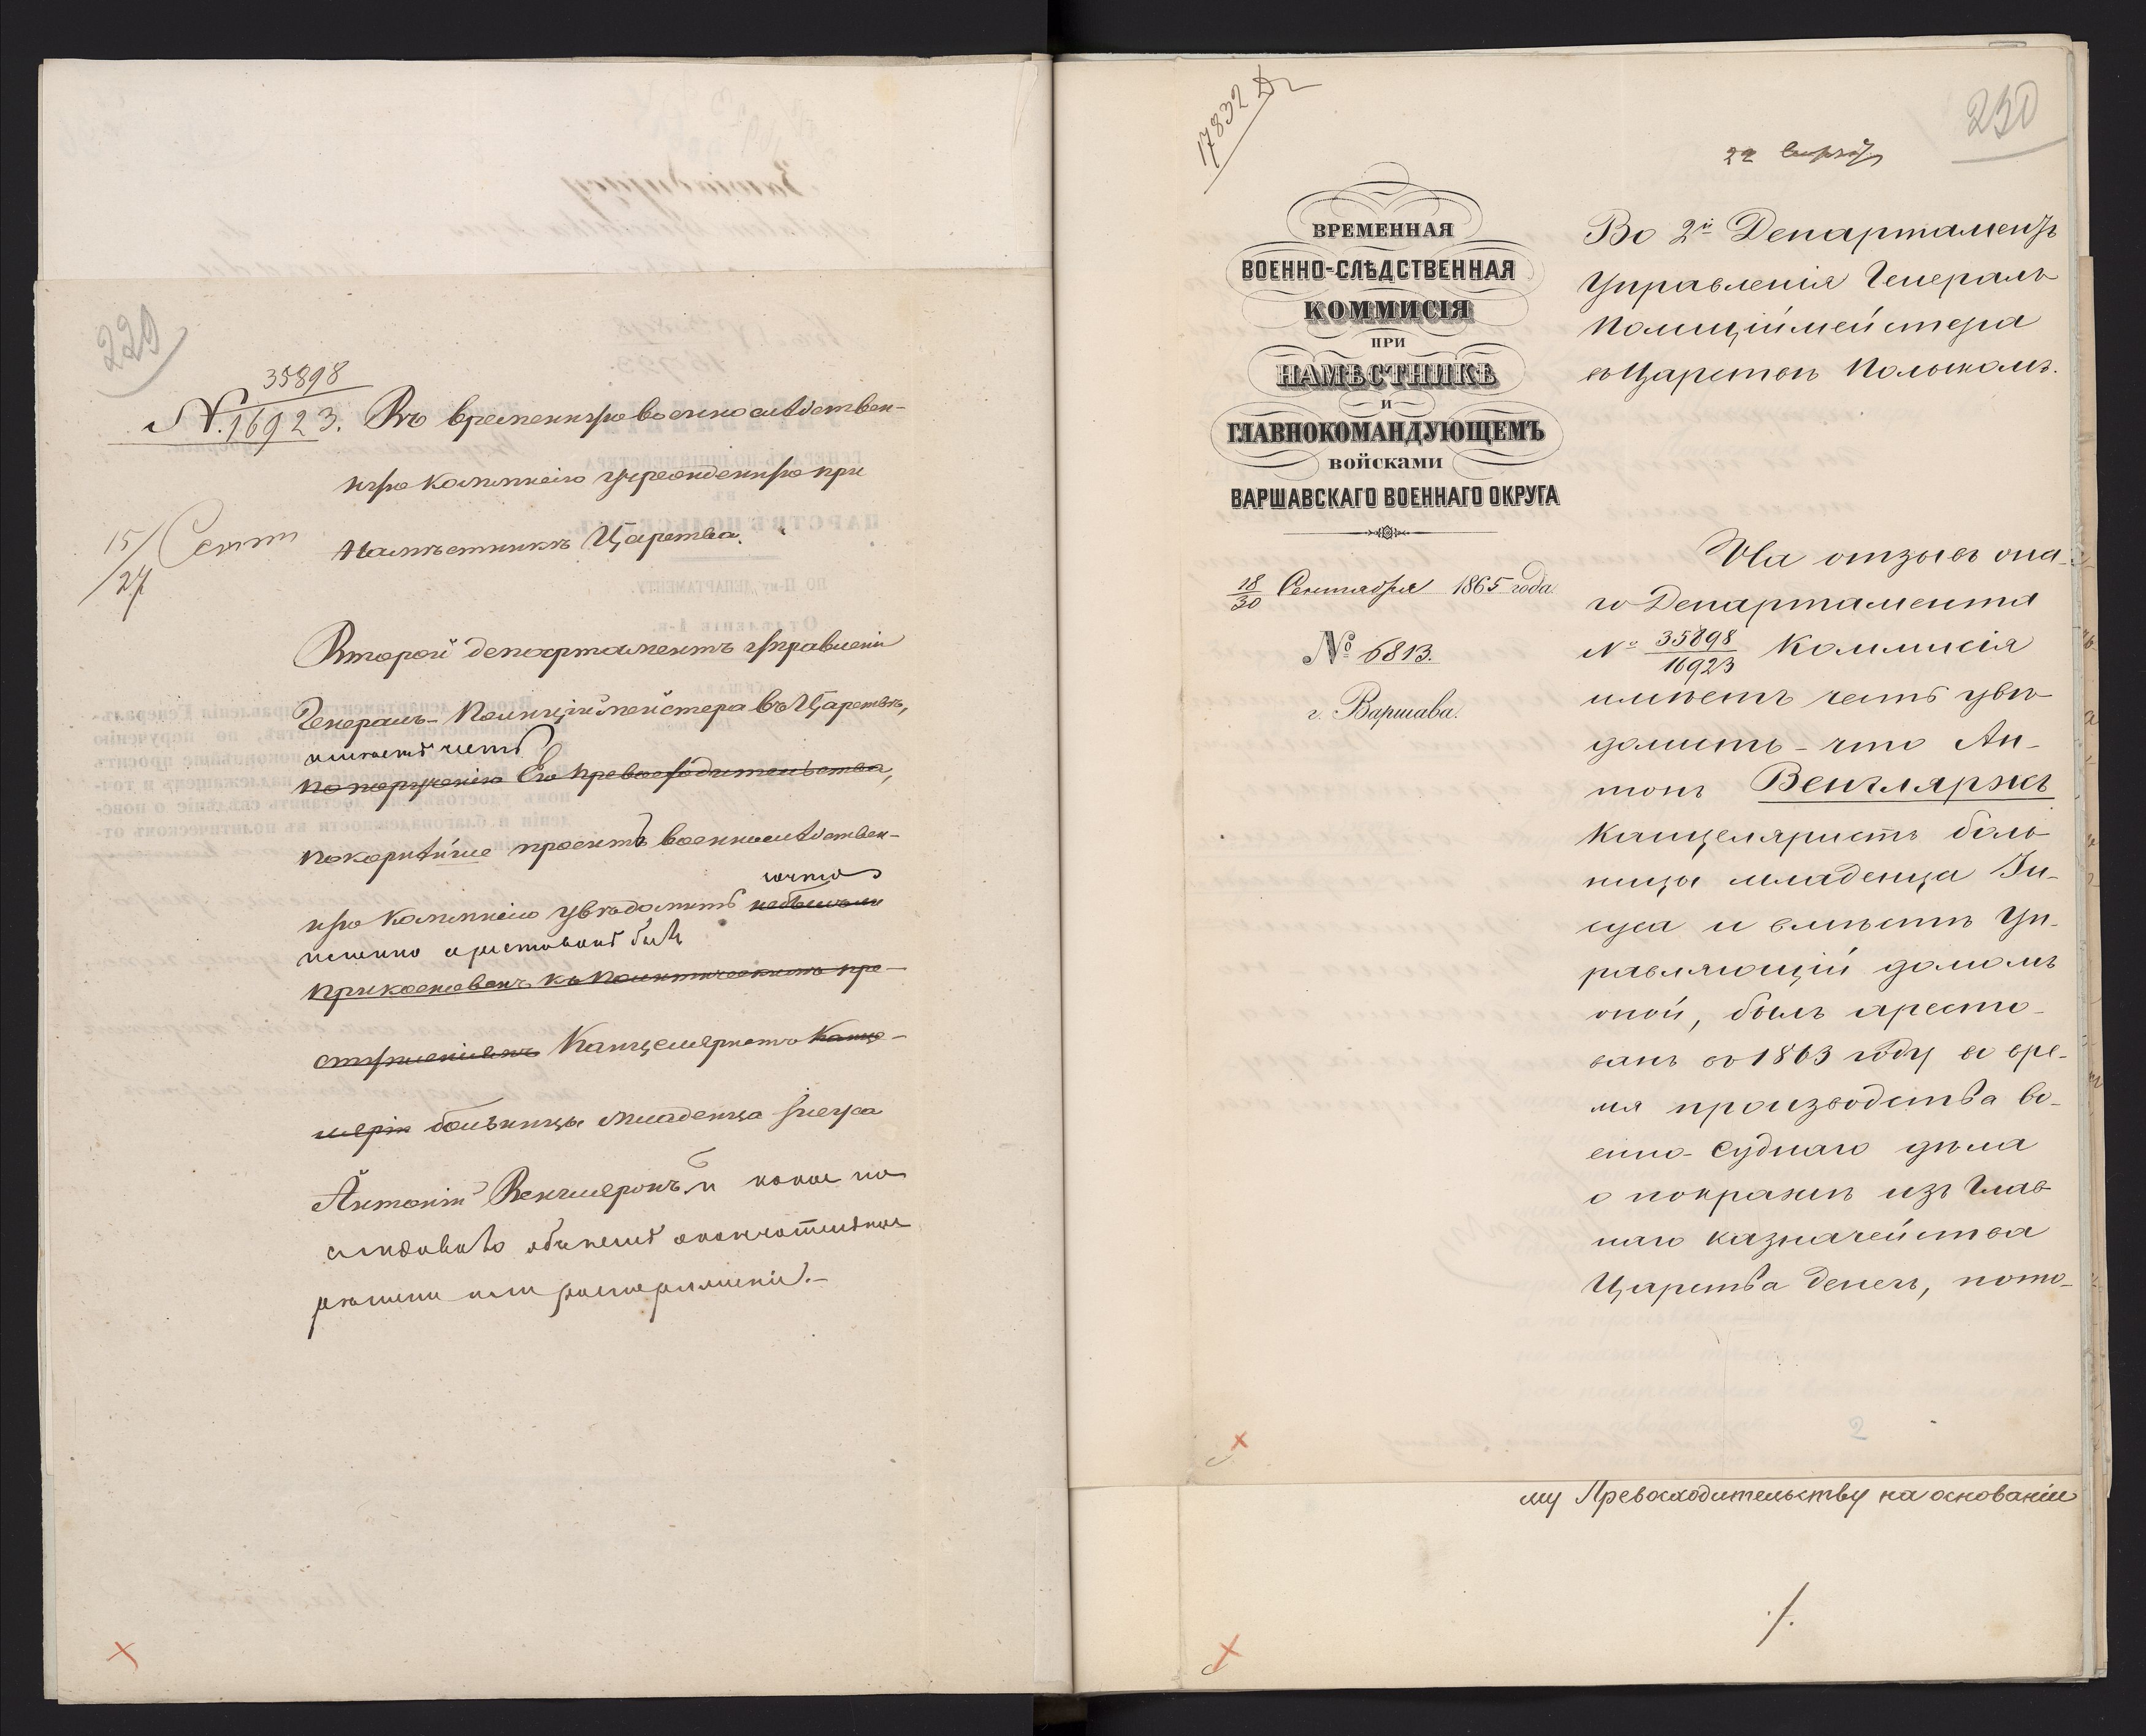 229
35898
N. 16923.
15/27 Сент
Въ временную военнослѣдствен-
ную коммисію учрежденную при
Намѣстникѣ Царства.
Второй департаментъ управленія
Генералъ-Полиціймейстера въ Царствѣ,
имѣетъ честь
по порученію Его Превосходительства,
покорнѣйше проситъ военнослѣдствен-
ную коммисію увѣдомить
за что
именно арестованъ былъ
прикосновенъ къ политическимъ пре-
ступленіямъ Канцеляристъ канце-
лярія больницы младенца Іисуса
Антоній Венгляржъ и какое по
слѣдовало объ немъ окончательное
рѣшеніе или распоряженіе.-
17832
230
22
ВРЕМЕННАЯ
ВОЕННО-СЛѢДСТВЕННАЯ
КОММИСІЯ
ПРИ
НАМѢСТНИКѢ
И
ГЛАВНОКОМАНДУЮЩЕМЪ
ВОЙСКАМИ
ВАРШАВСКАГО ВОЕННАГО ОКРУГА
18/30 Сентября 1865 года.
№ 6813.
г. Варшава.
Во 2й Департаментъ
Управленія Генералъ
Полиціймейстера
въ Царствѣ Польскомъ.
На отзывъ она-
го Департамента
№ 35898/16923 Коммисія
имѣетъ честь увѣ-
домить - что Ан-
тонъ Венгляржъ
Канцеляристъ боль-
ницы младенца Іи-
суса и вмѣстѣ Уп-
равляющій домомъ
оной, былъ аресто-
ванъ въ 1863 году во вре-
мя производства во-
енно-Суднаго дѣла
о покражѣ изъ Глав-
наго казначейства
Царства денегъ, пото-
2
му Превосходительству на основаніи
./.